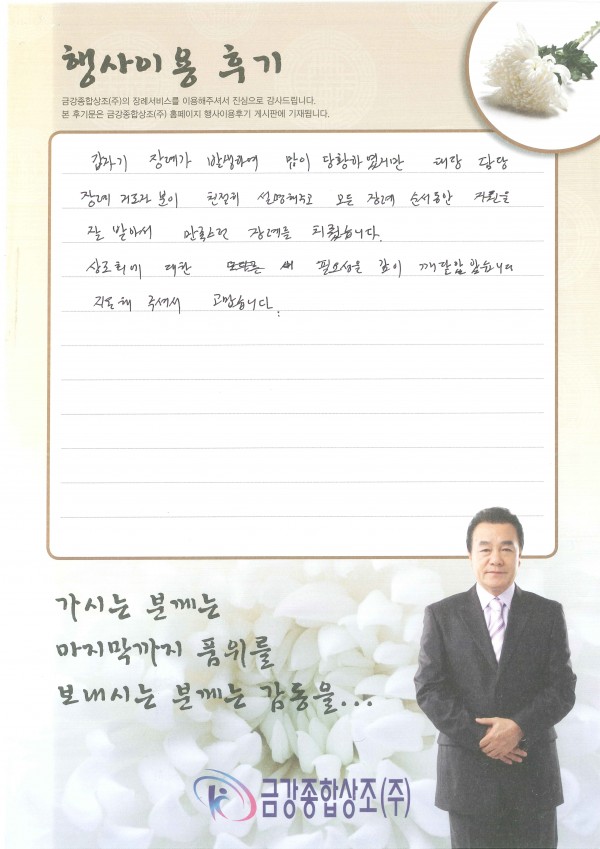 행사이용 후기
금강종합상조(주)의 장례서비스를 이용해주셔서 진심으로 감사드립니다.
본 후기문은 금강종합상조(주) 홈페이지 행사이용후기 게시판에 기재됩니다.
갑자기 장례가 발생하여 많이 당황하였지만 담당
장례 지도자 분이 친절히 설명해주고 모든 장례 순서동안
잘 받아서 만족스런 장례를 치뤘습니다.
상조회에 대한 필요성을 깊이 깨달았습니다
지도해 주셔서 고맙습니다.
가시는 분께는
마지막까지 품위를
보내시는 분께는 감동을...
금강종합상조(주)